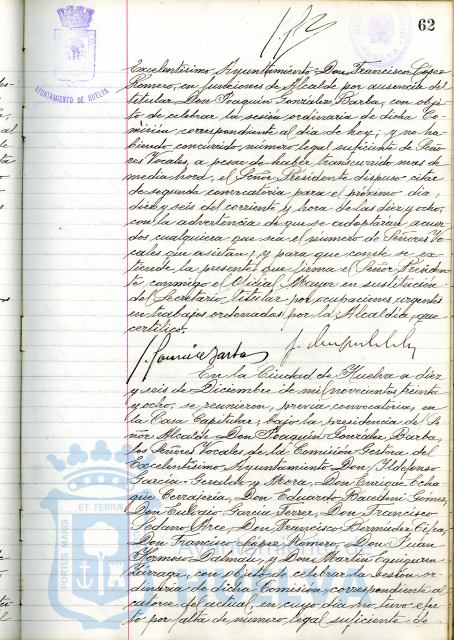 62
AYUNTAMIENTO DE HUELVA
Excelentísimo Ayuntamiento Don Francisco López
Romero, en funciones de Alcalde por ausencia del
titular Don Joaquín González Barba, con obje-
to de celebrar la sesión ordinaria de dicha Co-
misión correspondiente al día de hoy; y no ha-
biendo concurrido número legal suficiente de Seño-
res Vocales, a pesar de haber transcurrido mas de
media hora, el Señor Presidente dispuso citar
de segunda convocatoria para el próximo día,
diez y seis del corriente, y hora de las diez y ocho,
con la advertencia de que se adoptarán acuer-
dos cualquiera que sea el número de Señores Vo-
cales que asistan; y para que conste se ex-
tiende la presente que firma el Señor Presiden-
te conmigo el Oficial Mayor en sustitución
del Secretario titular por ocupaciones urgentes
en trabajos ordenados por la Alcaldía, que
certifico.
En la Ciudad de Huelva a diez
y seis de Diciembre de mil novecientos treinta
y ocho, se reunieron, previa convocatoria, en
la Casa Capitular, bajo la presidencia del Se-
ñor Alcalde Don Joaquín González Barba,
los Señores Vocales de la Comisión Gestora del
Excelentísimo Ayuntamiento Don Ildefonso
García y Mora, Don Enrique Echa
güe Don Eduardo Gómez,
Don Eulogio García Ferrer, Don Francisco
Arce, Don Francisco Bermúdez Cifra,
Don Francisco López Romero, Don Juan
y Don Martín Eguiguren
con objeto de celebrar la sesión or-
dinaria de dicha Comisión correspondiente al
catorce del actual, en cuyo día no tuvo efec-
to por falta de número legal suficiente de
PORTUS MARIS ET TERRAE
Ayuntamiento de